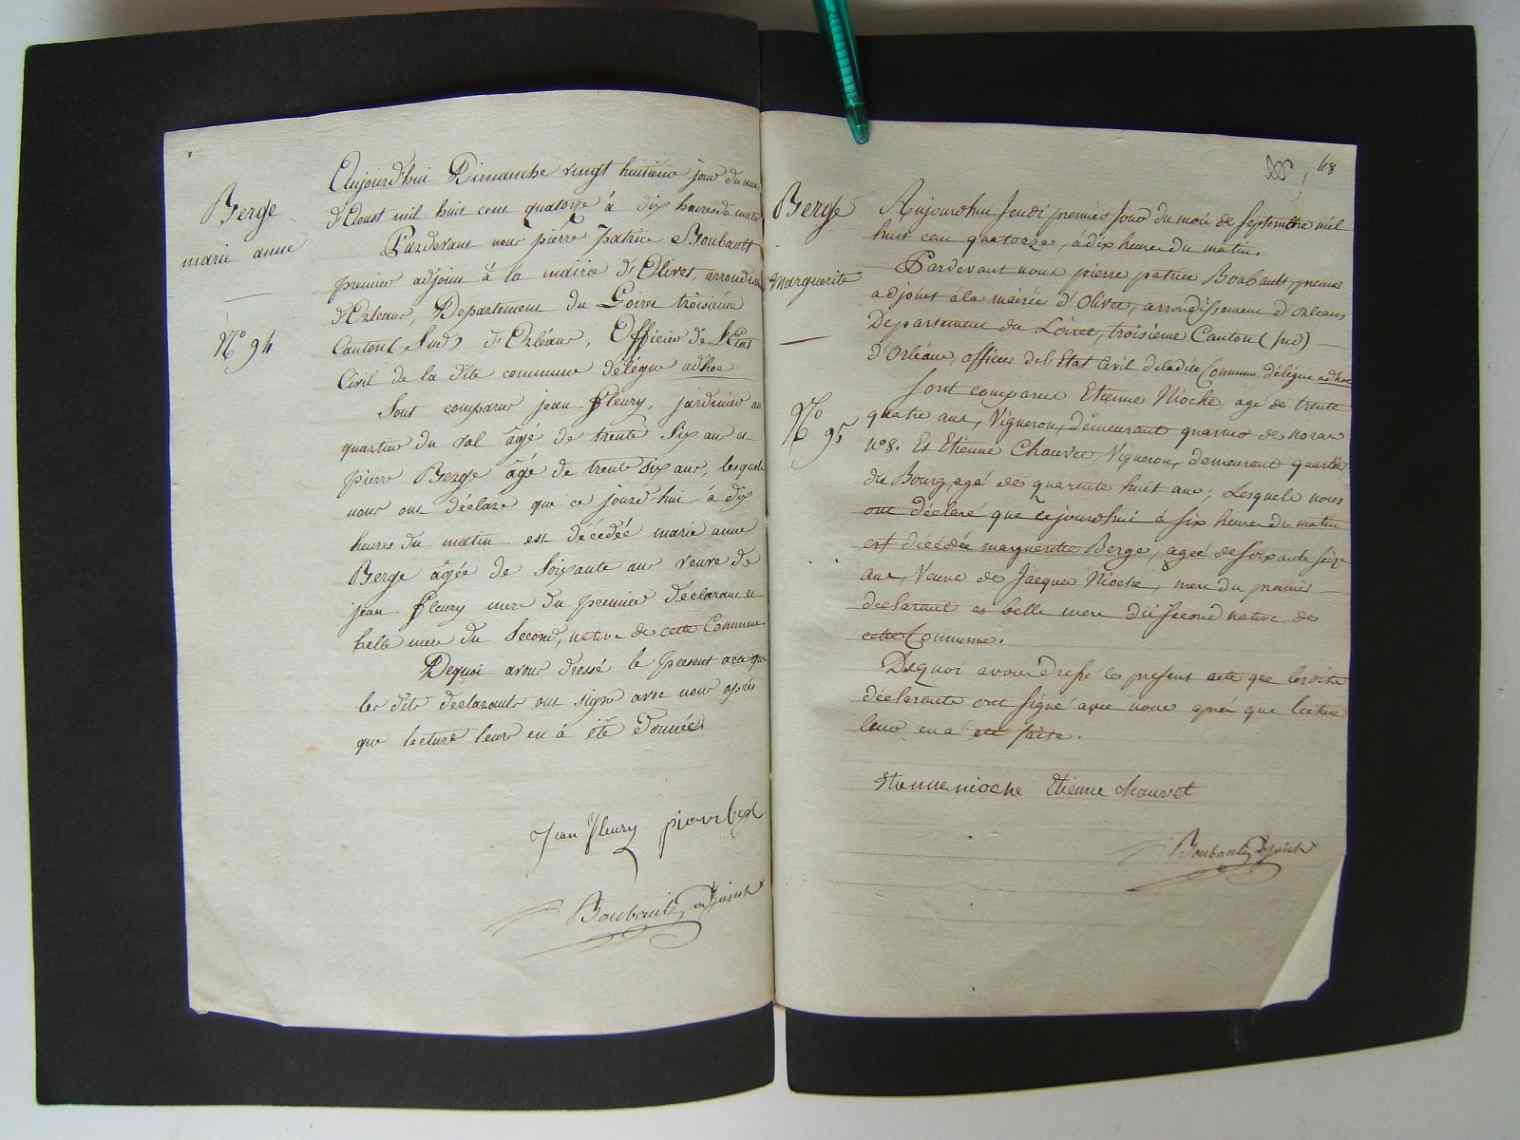 Berge
marie anne
N° 94
Aujourd'hui Dimanche vingt huitieme jour du mois
d'Aoust mil huit cent quatorze à dix heures du matin
Pardevant nous pierre patrice Boubault
premier adjoint à la mairie d'Olivet, arrondis
d'Orleans, Département du Loiret troisième
Canton (sud) d'Orléans, Officier de l'Etat
Civil de la dite commune délégué adhoc
Sont comparus jean fleury, jardinier au
quartier du val âgé de trente six ans et
pierre Berge âgé de trente six ans, lesquels
nous ont déclaré que ce jourd'hui à dix
heures du matin est décédée marie anne
Berge âgée de soixante ans veuve de
jean fleury mere du premier déclarant et
belle mere du second, native de cette Commune
Dequoi avons dressé le présent acte que
les dits déclarants ont signé avec nous après
que lecture leur en à été donnée
Jean fleury
Boubault adjoint
68
Berge
marguerite
N° 95
Aujourdhui Jeudi premier jour du mois de septembre mil
huit cent quatorze, à dix heures du matin.
Pardevant nous pierre patrice Boubault, premier
adjoint à la mairie d'Olivet, arrondissement d'orleans
Département du Loiret, troisième Canton (sud)
d'Orléans, officier de l'Etat Civil deladite Commune délégué adhoc
Sont comparus Etienne Nioche agé de trente
quatre ans, Vigneron, demeurant quartier de
n°8. Et Etienne Chauvet, Vigneron, demeurant quartier
du Bourg, agé de quarante huit ans; Lesquels nous
ont déclaré que cejourdhui à six heures du matin
est décédée marguerite Berge, agée de soixante seize
ans, Veuve de Jacques Nioche, mere du premier
declarant et belle mere du second native de
cette Commune.
Dequoi avons dressé le present acte que lesdits
déclarants ont signé avec nous après que lecture
leur en a été faite.
etienne nioche Etienne chauvet
Boubault adjoint